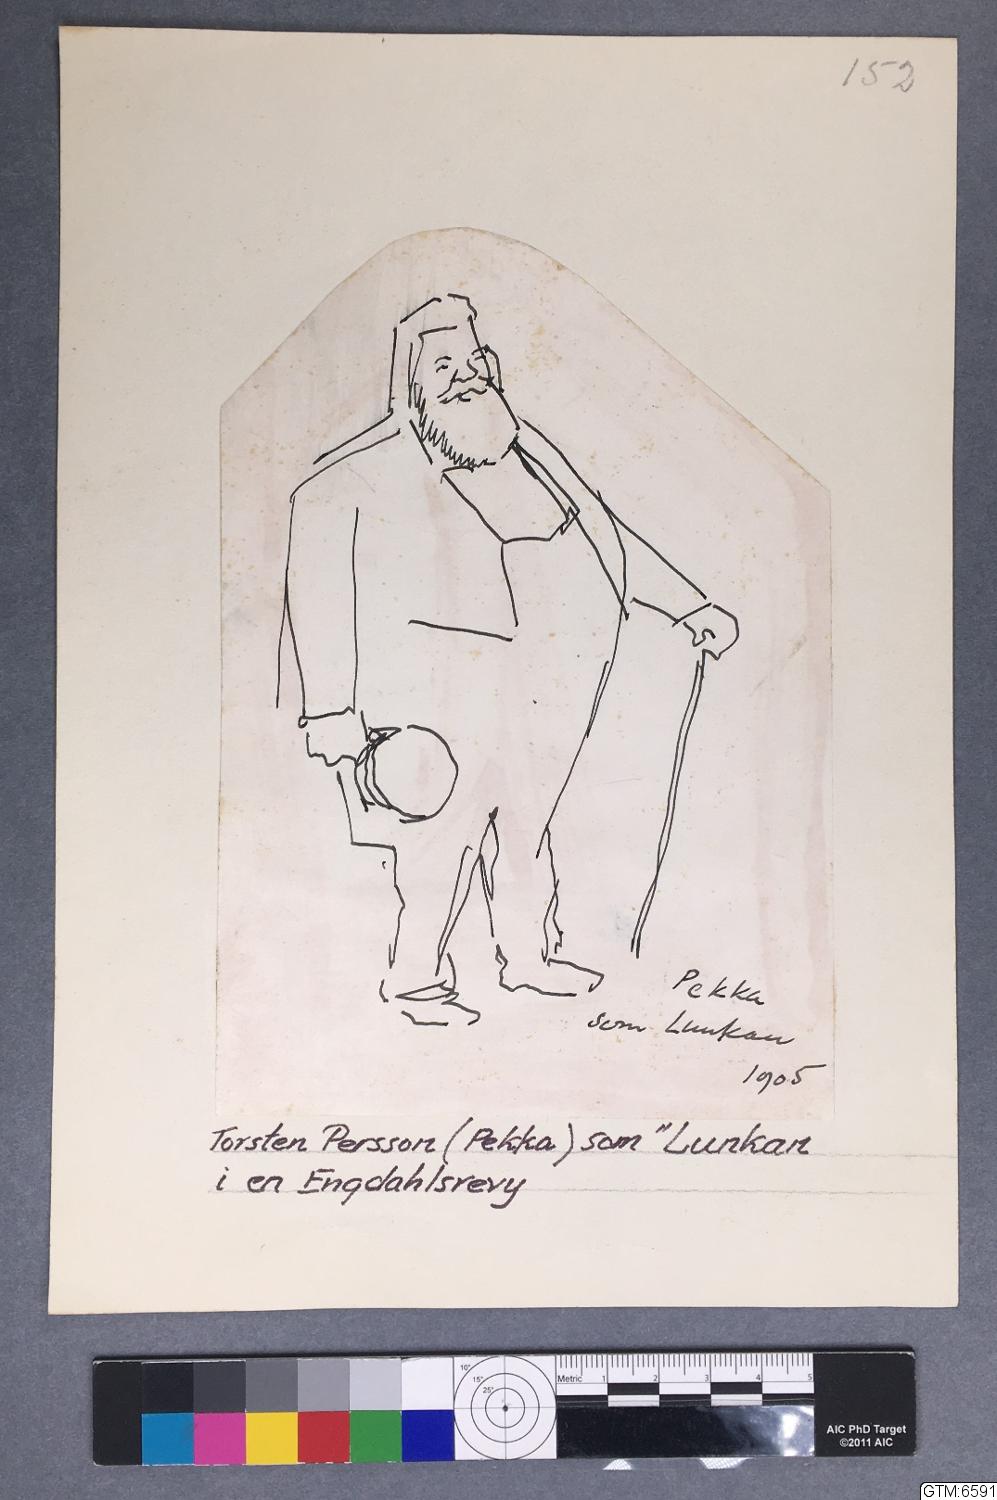 152
Pekka
som Lunkan
1905
Torsten Persson (Pekka) som "Lunkan
i en Engdahlsrevy
10°
15°
25°
Metric 1 2 3 4 5
AIC PhD Target
©2011 AIC
GTM:6591